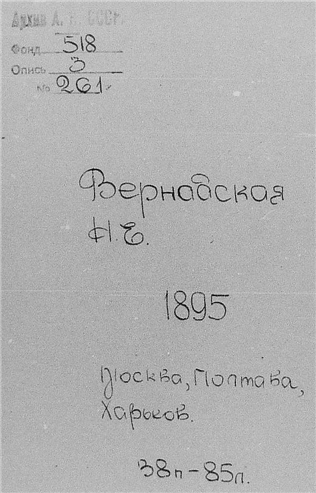 Архив А. Н. СССР.
Фонд 518
Опись 3
№ 261
Вернадская
Н.Е.
1895
Москва, Полтава,
Харьков.
38п-85л.